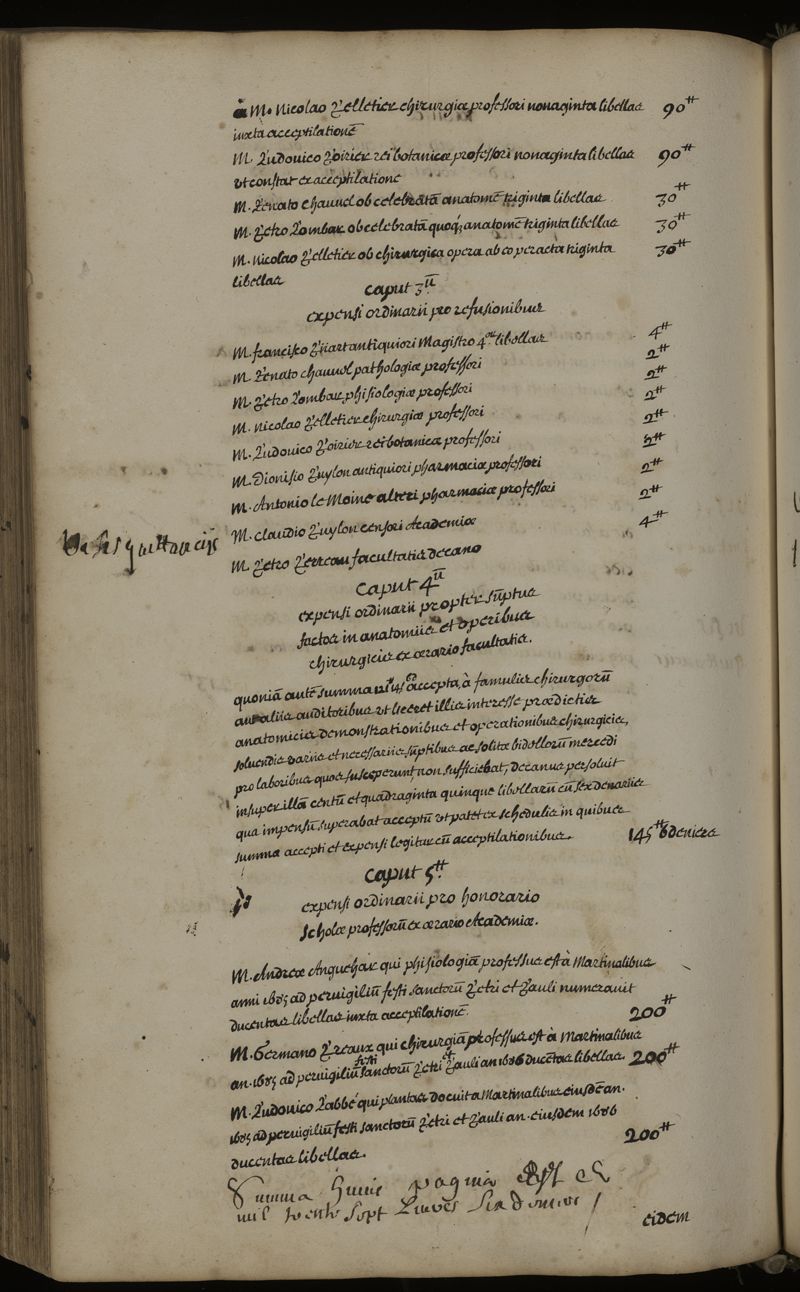 M. Nicolao Pelletier chirurgiæ professori nonaginta libellas 90ᵗᵗ
iuxta acceptilationē
M. Ludouico Poirier rei botanicæ professori nonaginta libellas 90ᵗᵗ
vt constat ex acceptilatione
M. Renato Chauuel ob celebratā anatomē triginta libellas 30ᵗᵗ
M. Petro Lombar ob celebratā quoq; anatomē triginta libellas 30ᵗᵗ
M. Nicolao Pelletier ob chirurgica opera ab eo peracta triginta 30ᵗᵗ
libellas
Caput 3ū
expensi ordinarii pro refusionibus
M. francisco antiquiori Magistro 4ᵒʳ libellas 4ᵗᵗ
M. Renato chauuel pathologiæ professori 2ᵗᵗ
M. Petro Lombar phisiologiæ professori 2ᵗᵗ
M. Nicolao Pelletier chirurgiæ professori 2ᵗᵗ
M. Ludouico Poirier rei botanicæ professori 2ᵗᵗ
M. Dionisio Puylon antiquiori pharmaciæ professori 2ᵗᵗ
M. Antonio le Moine alteri pharmaciæ professori 2ᵗᵗ
M. claudio Puylon censori Academiæ 2ᵗᵗ
M. Petro Perreau facultatis decano 4ᵗᵗ
quittanciis
Caput 4ū
expensi ordinarii propter sūptus
factos in anatomiis et operibus
chirurgicis ex ærario facultatis.
quoniā autē summa accepta à famulis chirurgorū
aut aliis auditoribus vt liceret illis interesse prædictis
anatomicis demonstrationibus et operationibus chirurgicis,
soluendis variis et necessariis sūptibus ac solitæ bidellorū mercedi
pro laboribus quos susceperunt non sufficiebat, decanus persoluit
insuper illā centū et quadraginta quinque libellarū cū sex denariis
qua impensū superabat acceptū vt patet ex schedulis in quibus
summa accepti et expensi legitur cū acceptilationibus. 145ᵗᵗ 6 deniers
Caput 5ᵗᵗ
expensi ordinarii pro honorario
scholæ professorū ex ærario Academiæ.
M. Andreæ Enguehar qui phisiologiā professus est à Martinalibus
anni 1685 ad peruigiliū festi sanctorū Petri et Pauli numerauit
ducentas libellas iuxta acceptilationē. 200ᵗᵗ
M. Germano Preaux qui chirurgiā professus est à Martinalibus
an. 1685 ad peruigiliū festi sanctorū Petri et Pauli an 1686 ducētas libellas. 200ᵗᵗ
M. Ludouico Labbé qui plantas docuit a Martinalibus eiusdē an.
1685 ad peruigiliū festi sanctorū Petri et Pauli an. eiusdem 1686
ducentas libellas. 200ᵗᵗ
Summa huius paginæ est
mil cents sept Liures six deniers
eidem